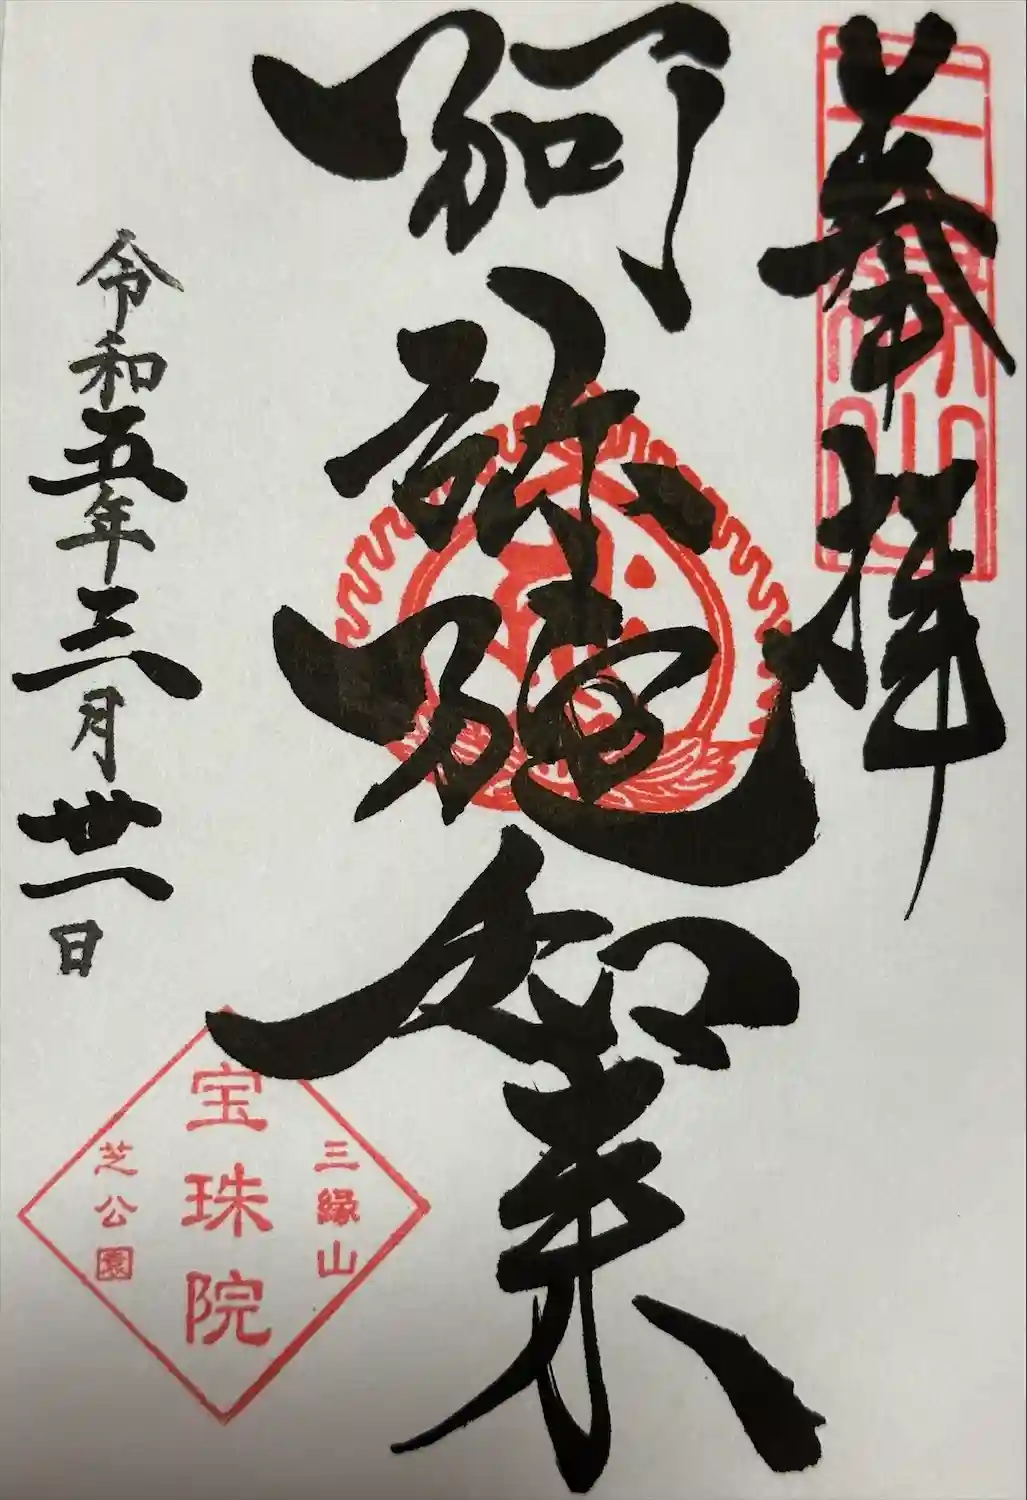 奉拝
三縁山
阿弥陀如来
令和五年三月卅一日
三縁山
宝珠院
芝公園